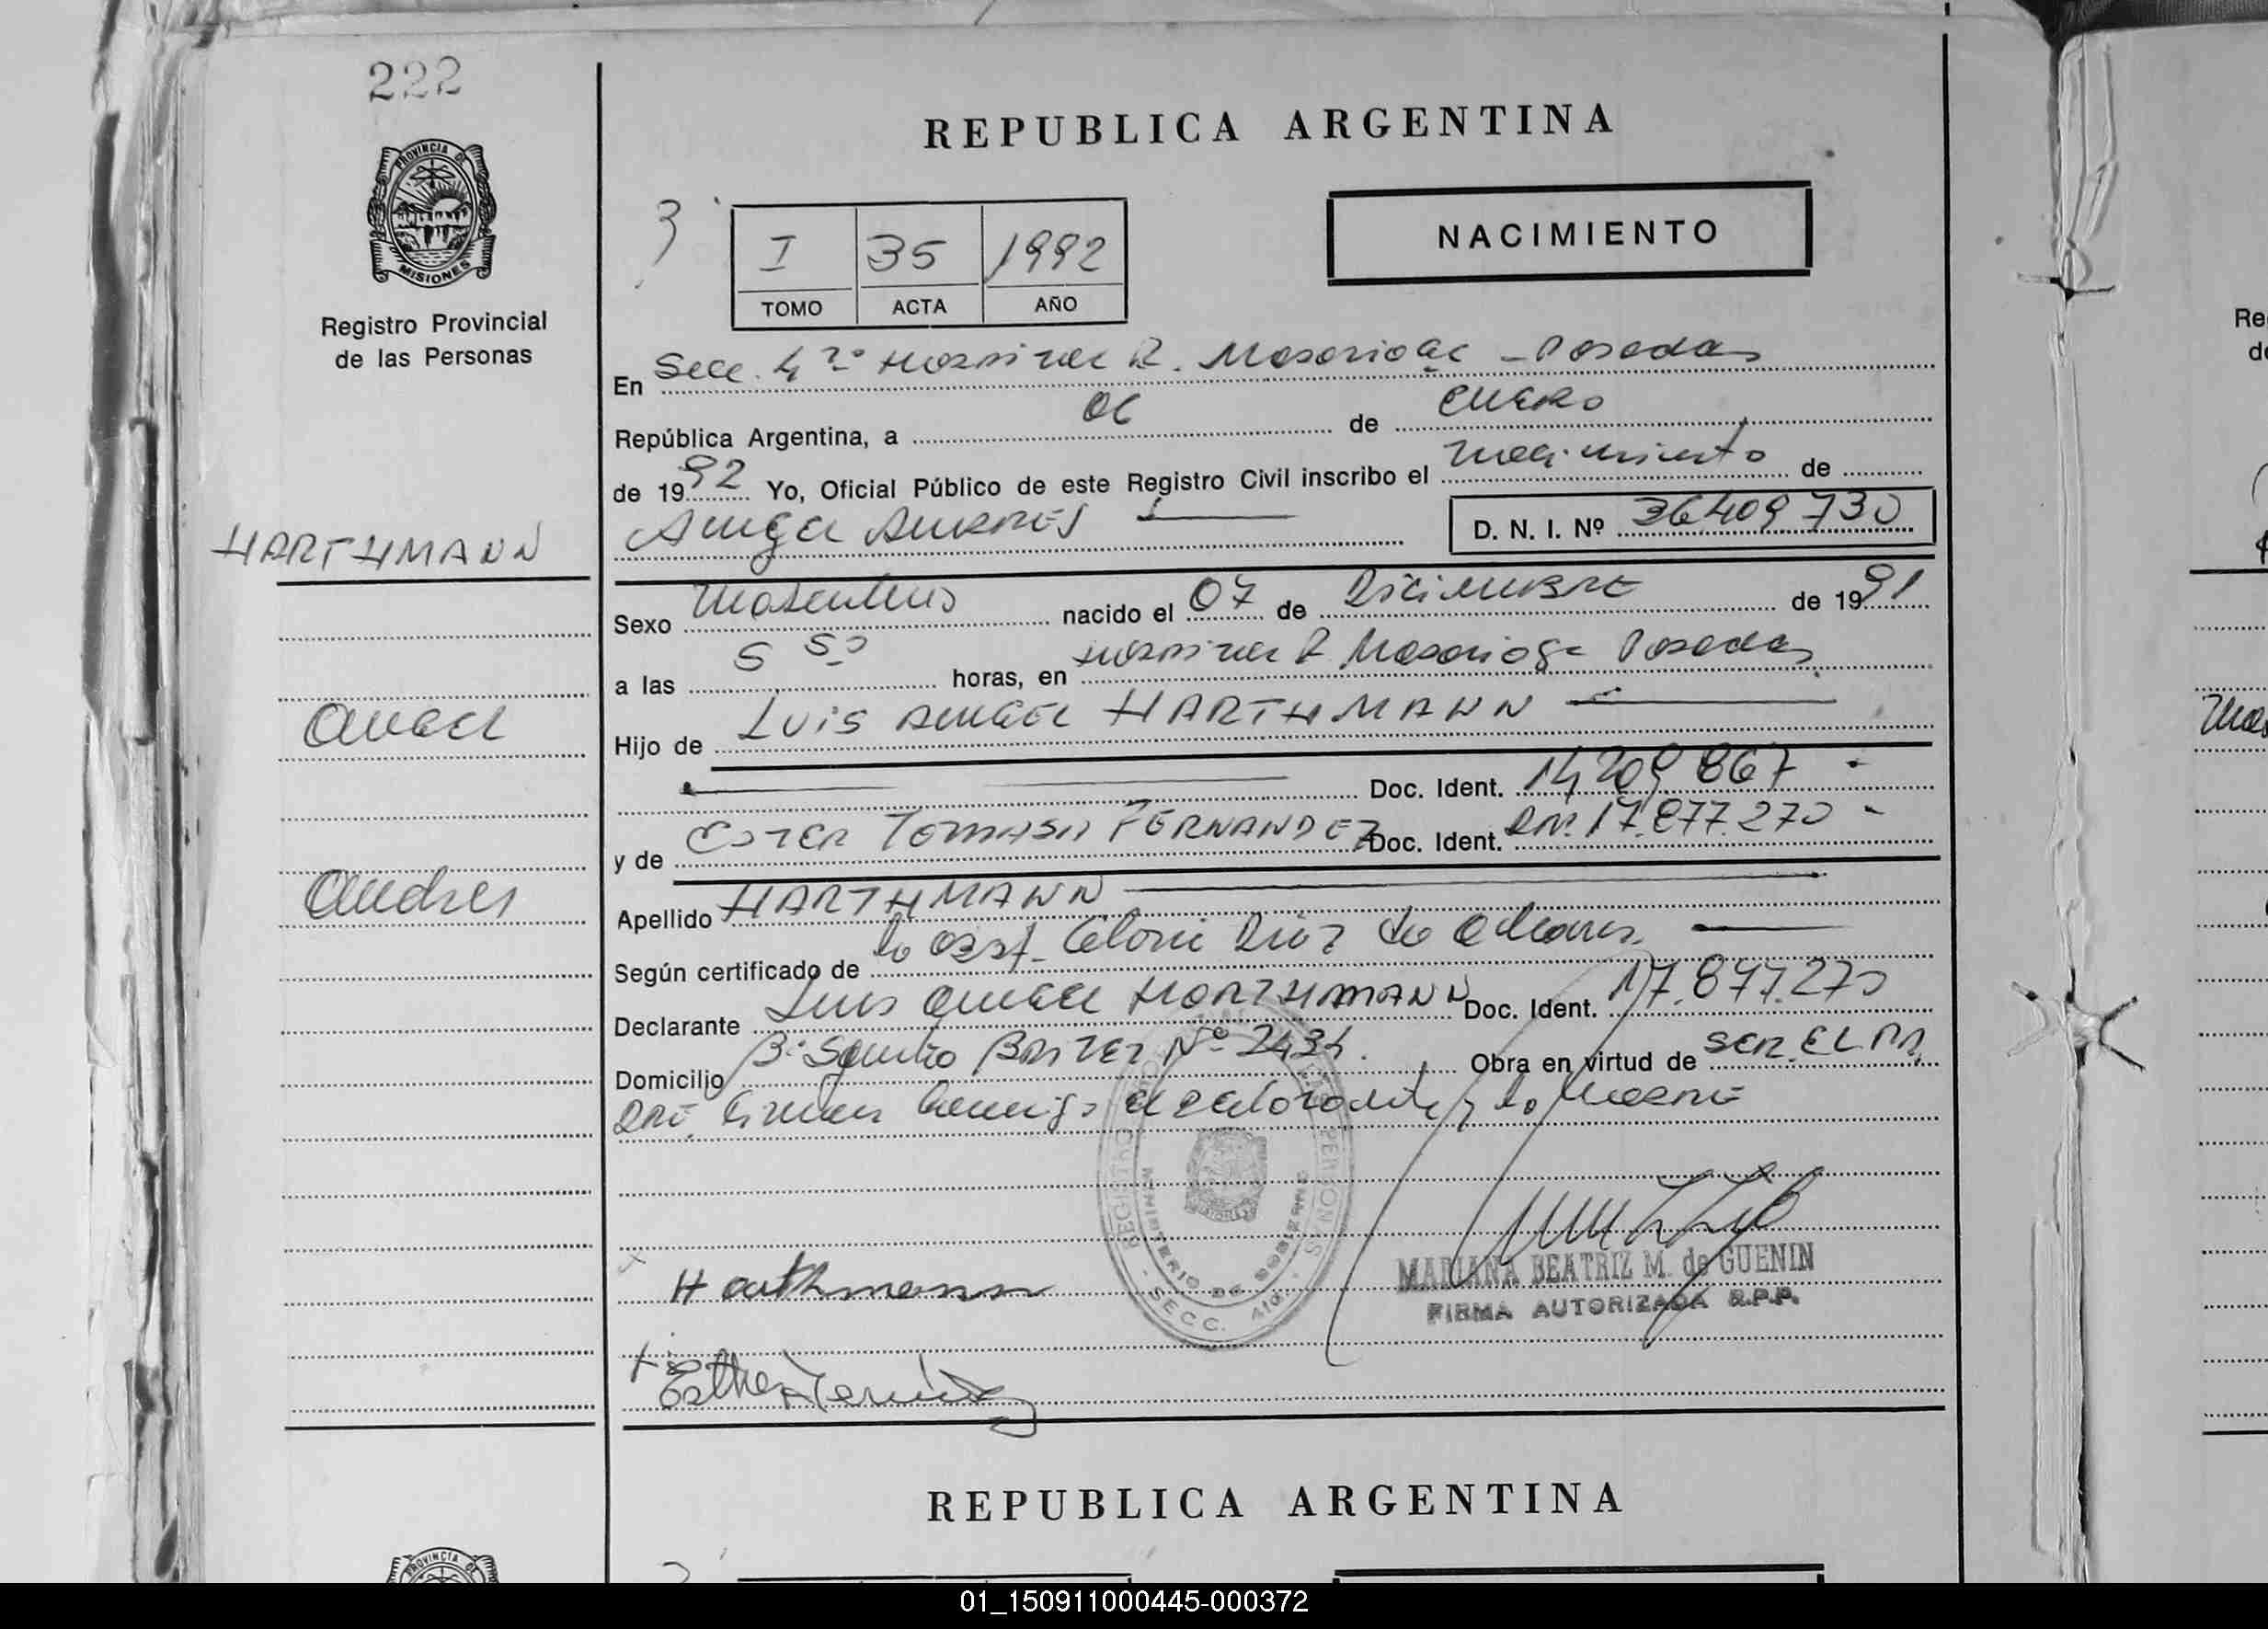 222
REPUBLICA ARGENTINA
PROVINCIA DE
MISIONES
Registro Provincial
de las Personas
3
I 35 1992
TOMO ACTA AÑO
NACIMIENTO
En Secc. 4ta Hospital R. Madariaga - Posadas
República Argentina, a 06 de enero
de 1992 Yo, Oficial Público de este Registro Civil inscribo el nacimiento de
Angel Andres D. N. I. Nº 36409730
HARTHMANN
Angel
Andres
Sexo Masculino nacido el 07 de Diciembre de 1991
a las 5 50 horas, en Hospital R. Madariaga Posadas
Hijo de Luis Angel HARTHMANN
Doc. Ident. 14.209.867 -
y de Ester Tomasa FERNANDEZ Doc. Ident. DNI. 17.877.270 -
Apellido HARTHMANN
Según certificado de la Obst. Gloria Diaz de
Declarante Luis Angel HARTHMANN Doc. Ident. 17.877.270
Domicilio Bº Santo Nº 2434. Obra en virtud de ser el pa
dre. Firman conmigo el declarante y la madre
REGISTRO PERSONAS
MINISTERIO DE GOBIERNO
SECC. 4ta.
Harthmann
MARIANA BEATRIZ M. de GUENIN
FIRMA AUTORIZADA R.P.P.
Esther Fernandez
REPUBLICA ARGENTINA
PROVINCIA DE
01_150911000445-000372